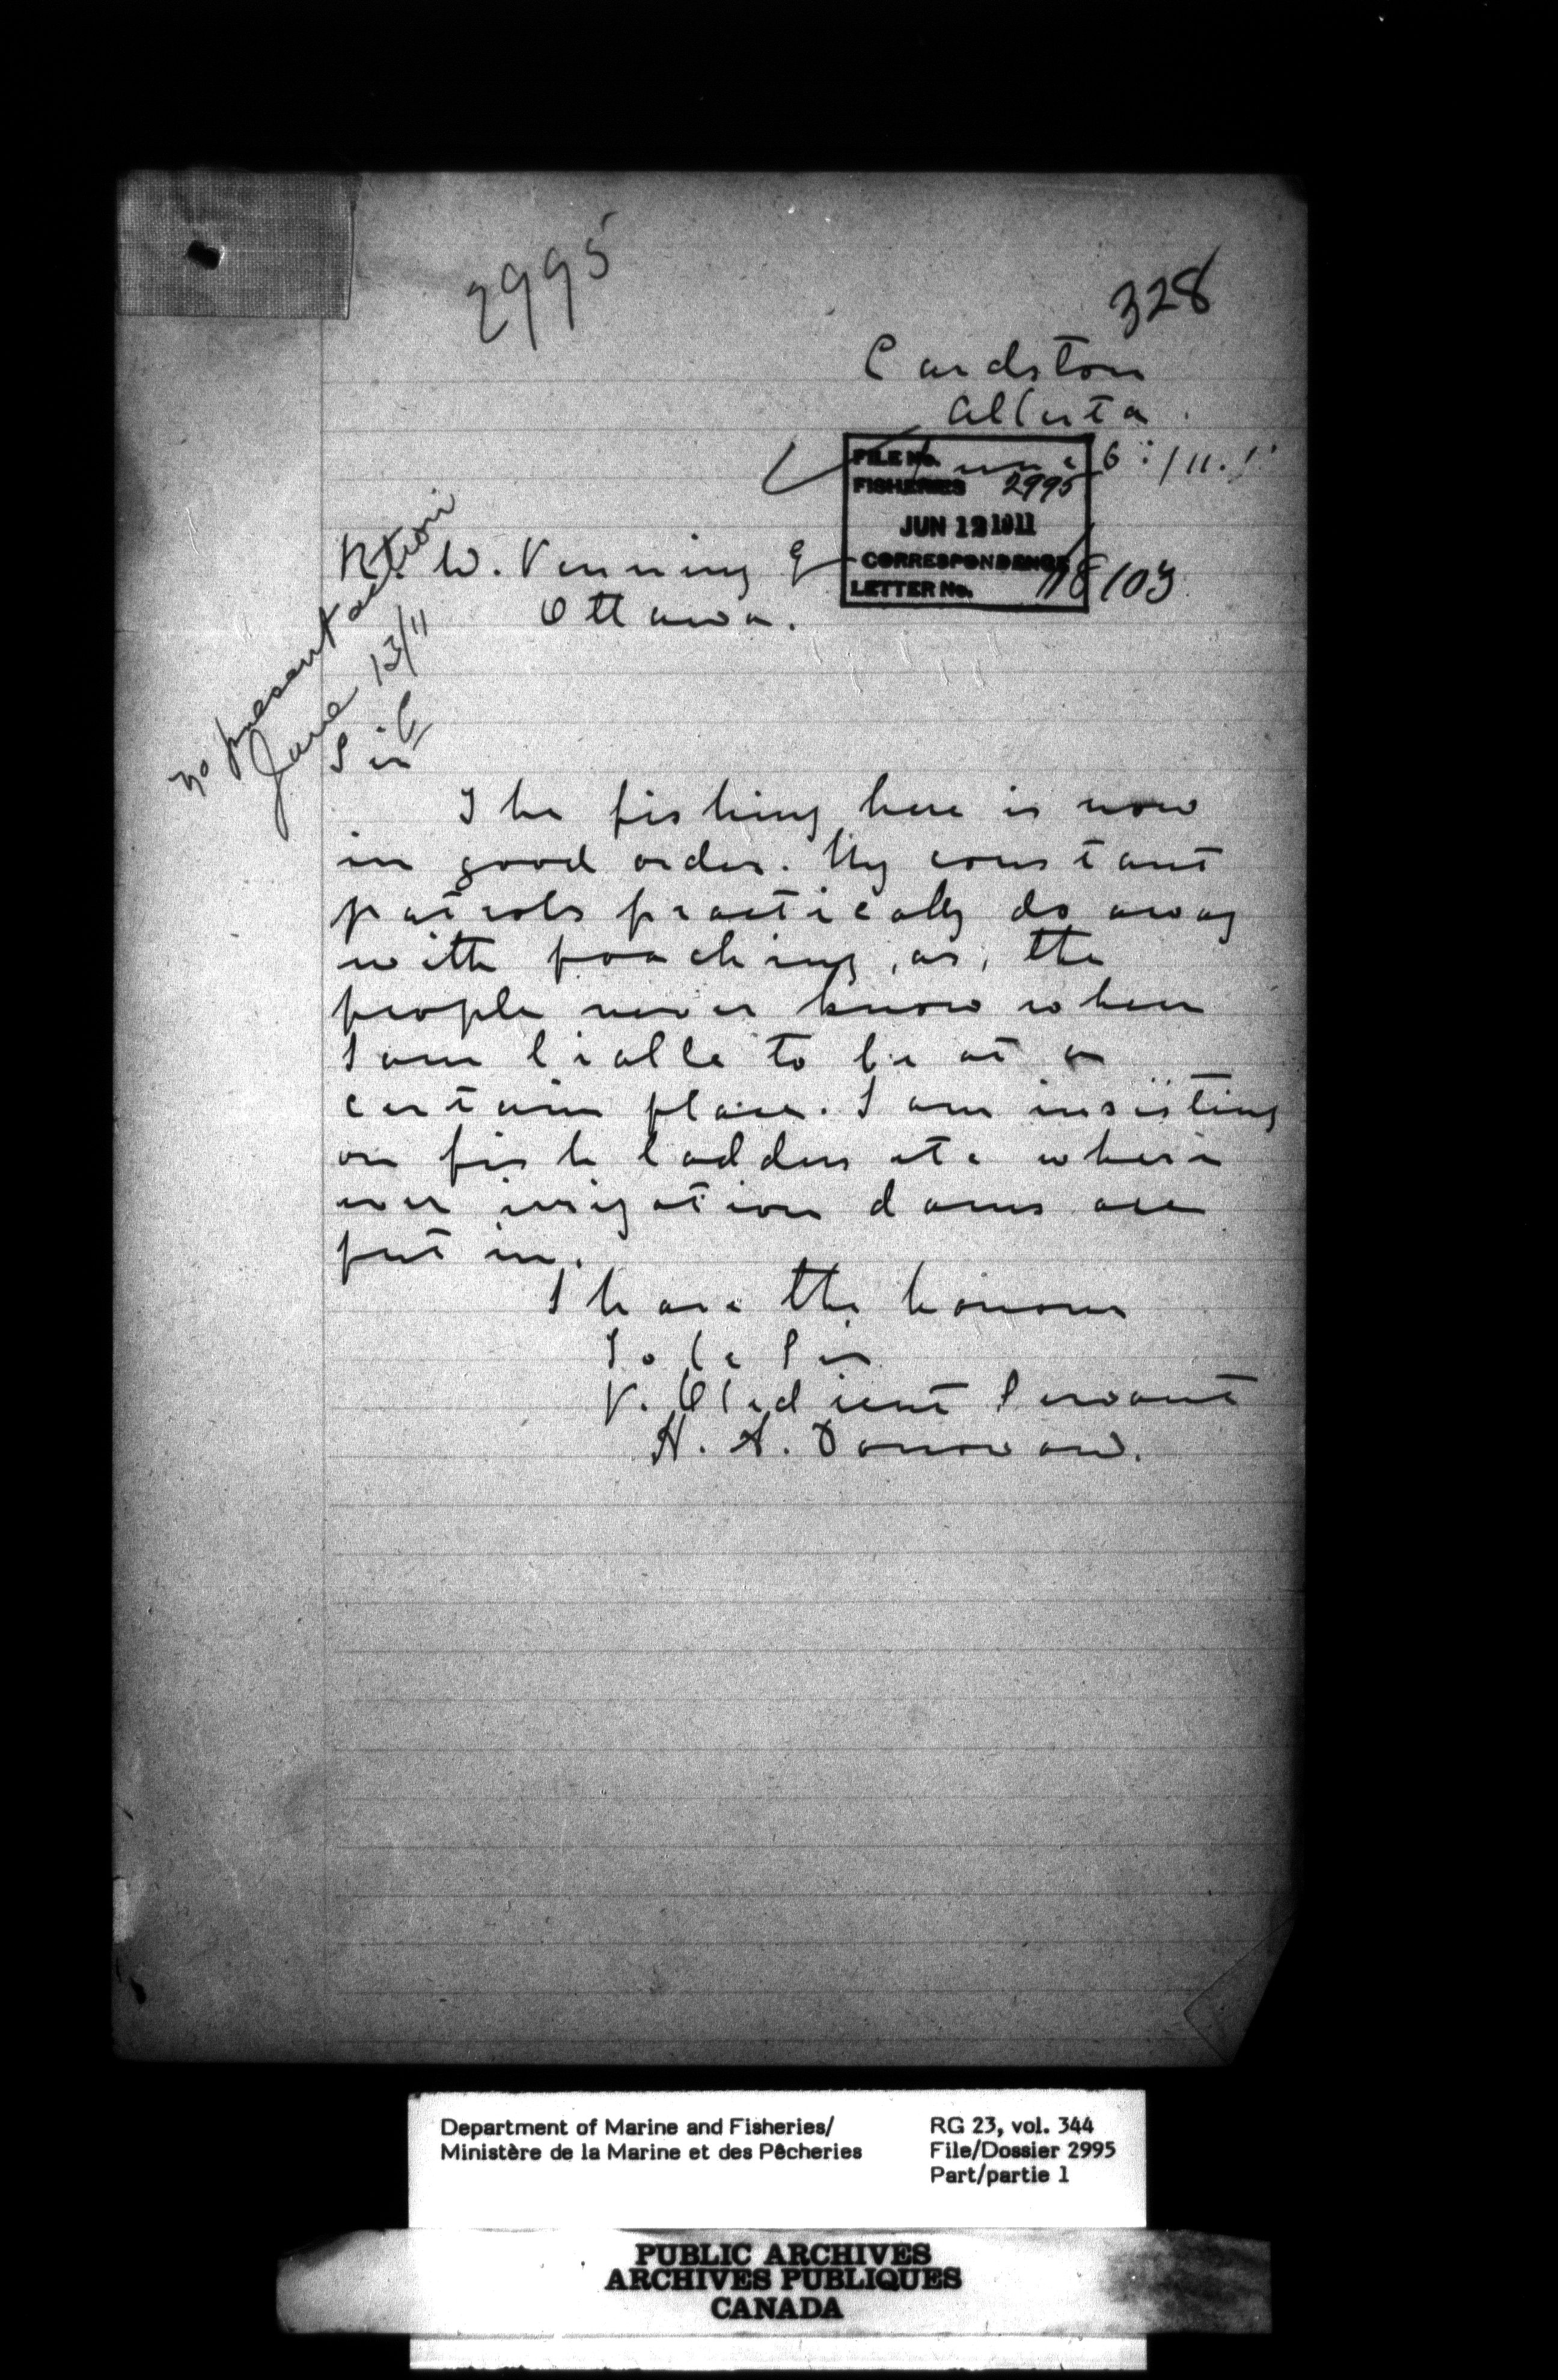 2995
328
Cardston
Alberta.
June 6th /11.
FILE No.
FISHERIES 2995
JUN 12 1911
CORRESPONDENCE
LETTER No.
R. W. Venning
Ottawa.
No present action
June 13/11
Sir
The fishing here is now
in good order. My constant
patrols practically do away
with poaching, as, the
people never know when
I am liable to be at a
certain place. I am insisting
on fish ladders etc where
ever irrigation dams are
put in.
I have the honour
To be Sir
Y. Obedient Servant
Department of Marine and Fisheries/
Ministère de la Marine et des Pêcheries
RG 23, vol. 344
File/Dossier 2995
Part/partie 1
PUBLIC ARCHIVES
ARCHIVES PUBLIQUES
CANADA